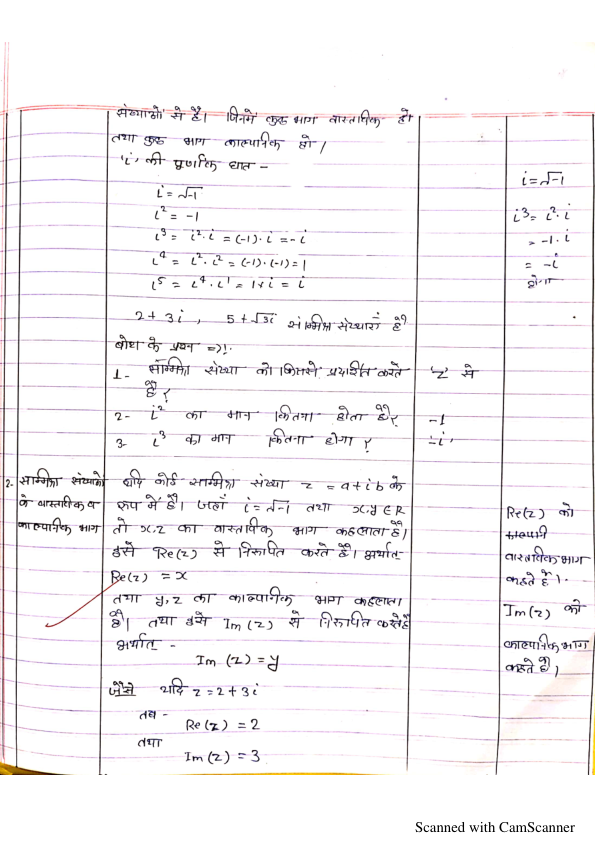 संख्याओं से है। जिनमें कुछ भाग वास्तविक हो
तथा कुछ भाग काल्पनिक हो।
'i' की पूर्णांक घात -
i = √-1
i² = -1
i³ = i².i = (-1).i = -i
i⁴ = i².i² = (-1).(-1) = 1
i⁵ = i⁴.i¹ = 1×i = i
2+3i, 5+√3i संम्मिश्र संख्याएं हैं
बोध के प्रश्न =>!.
1- सम्मिश्र संख्या को किससे प्रदर्शित करते
है?
2- i² का मान कितना होता है?
3- i³ का मान कितना होगा?
i=√-1
i³= i².i
= -1.i
= -i
होगा
'z' से
-1
-i'
2- सम्मिश्र संख्याओं
के वास्तविक व
काल्पनिक भाग
यदि कोई सम्मिश्र संख्या z = a+ib के
रूप में है। जहाँ i=√-1 तथा x,y∈R
तो x,z का वास्तविक भाग कहलाता है।
इसे Re(z) से निरूपित करते हैं। अर्थात
Re(z) = x
तथा y,z का काल्पनिक भाग कहलाता
है। तथा इसे Im(z) से निरूपित करते हैं
अर्थात -
Im(z) = y
जैसे यदि z=2+3i
तब -
Re(z) = 2
तथा
Im(z) = 3
Re(z) को
वास्तविक भाग
कहते हैं।.
Im(z) को
काल्पनिक भाग
कहते हैं।
Scanned with CamScanner